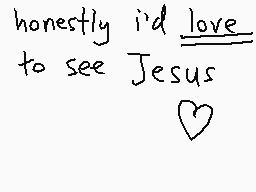 honestly i'd love
to see Jesus